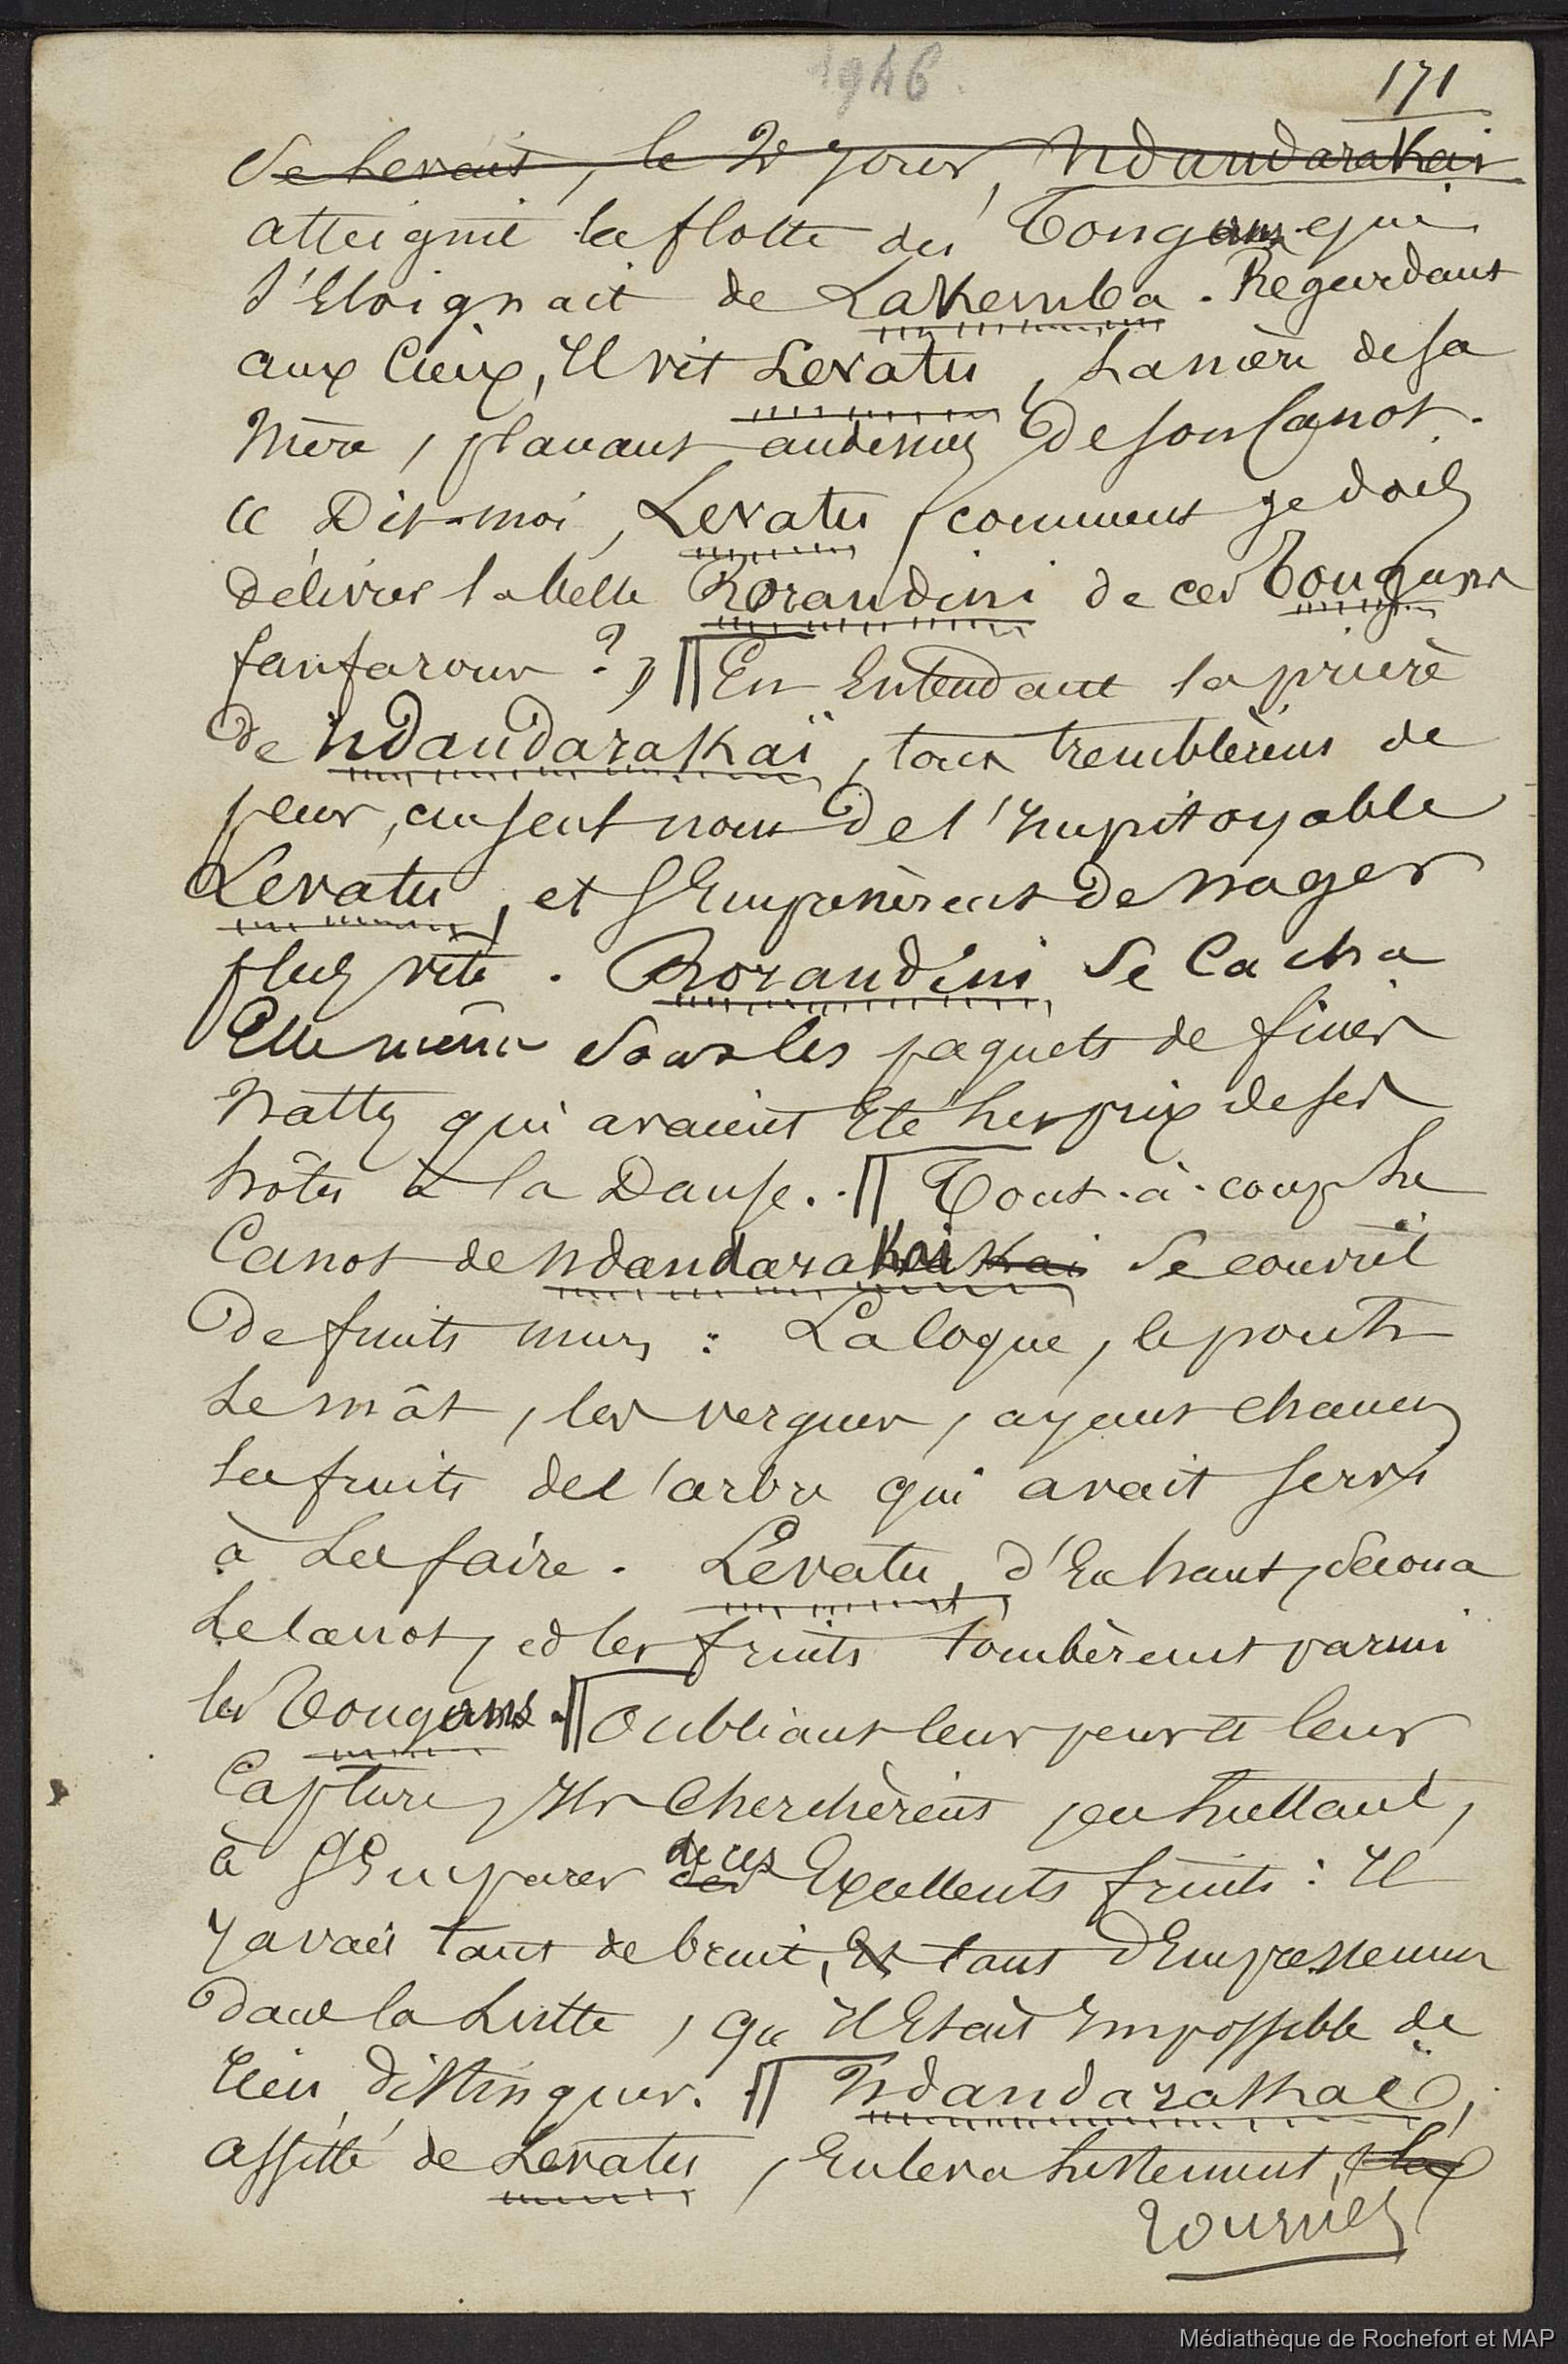 1946.
171
Se levant, le 2e jour, Ndandarakai
atteignit la flotte des Tongans qui
s'Eloignait de Lakemba. Regardant
aux Cieux, Il vit Levatu, la mère de sa
Mère, planant audessus de son Canot.
« Dis-moi, Levatu, comment je dois
délivrer la belle Rorandini de ces Tongans
fanfarons ? » En Entendant la prière
de Ndandarakaï, tous tremblèrent de
peur, au seul nom de l'Impitoyable
Levatu, et s'Empressèrent de nager
plus vite. Rorandini se Cacha
Elle même sous les paquets de fines
Nattes qui avaient Eté le prix de ses
hôtes à la Danse. Tout-à-coup le
Canot de Ndandarakai kai se couvrit
de fruits murs : La Coque, le pont
le mât, les vergues, ayant chacun
les fruits de l'arbre qui avait servi
à les faire. Lévatu, d'En haut, secoua
le Canot, et les fruits tombèrent parmi
les Tongans. Oubliant leur peur et leur
Capture, Ils Cherchèrent, en luttant,
à s'Emparer de ces Excellents fruits : Il
y avait tant de bruit, Et tant d'Empressement
dans la Lutte, qu'Il Etait Impossible de
rien distinguer. Ndandarakai,
assisté de Levatu, Enleva lestement, la
tournez
Médiathèque de Rochefort et MAP